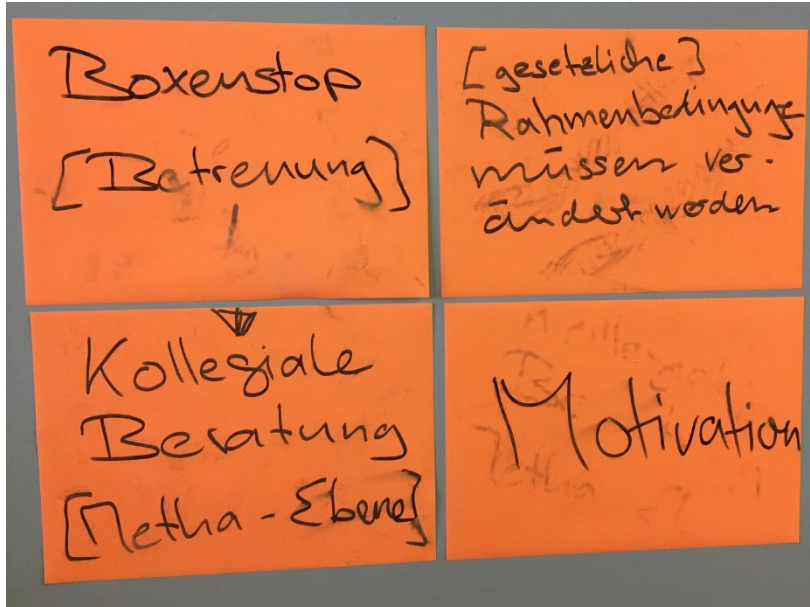 Boxenstop
[Betreuung]
[gesetzliche]
Rahmenbedingunge
müssen ver-
ändert werden
Kollegiale
Beratung
[Metha-Ebene]
Motivation